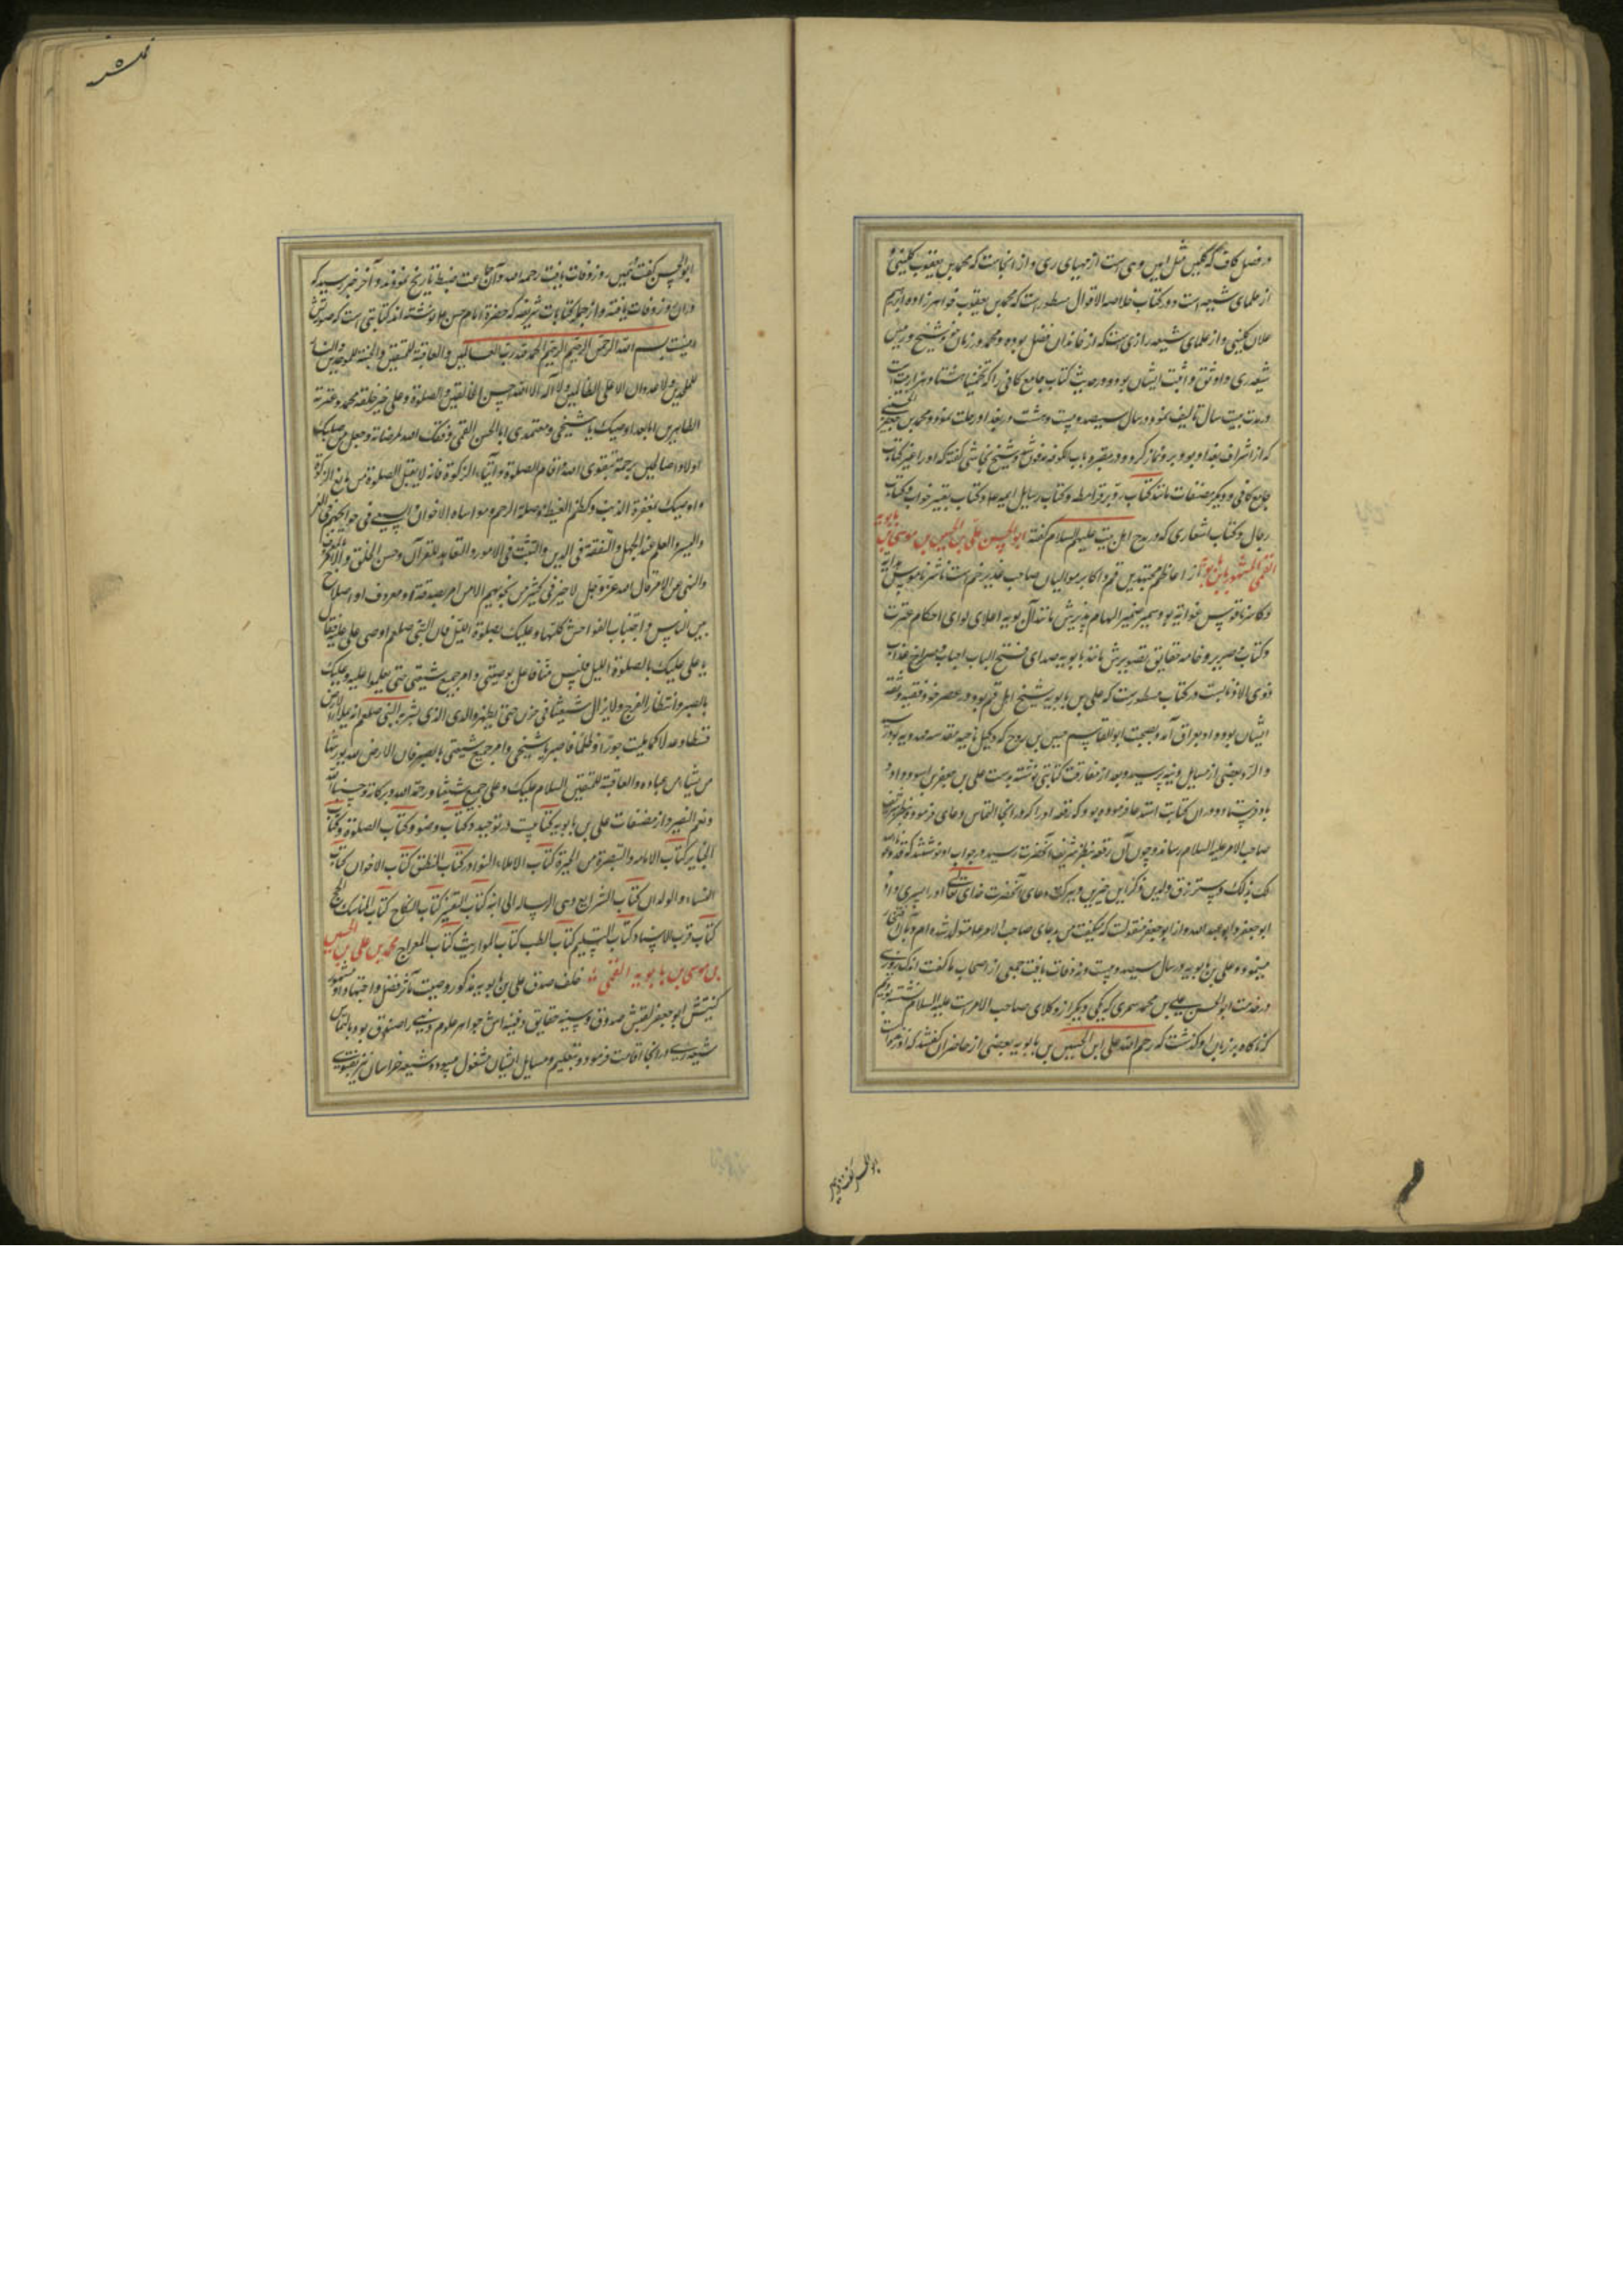 در فصل کاف که کلین مثل امین دهی است از دیههای ری و از انجاست که محمد بن یعقوب کلینی و
از علمای شیعه است و در کتاب خلاصه الاقوال مسطور است که محمد بن یعقوب خواهرزاده ابراهیم
علان کلینی و از علمای شیعه رازی است که از خاندان فضل بوده و محمد در زمان خود شیخ و رییس
شیعه ری و اوثق و اثبت ایشان بود و در حدیث کتاب جامع کافی را که تخمینا هشتاد هزار بیت است
در مدت بیست سال تالیف نمود و در سال سیصد و بیست و هشت در بغداد رحلت نمود و محمد بن جعفر الحسنی
که از اشراف بغداد بود برو نماز کرد و در مقبره باب کوفه مدفون شد و شیخ نجاشی گفته که او را غیر کتاب
جامع کافی و دیگر مصنفات مانند کتاب رد بر قرامطه و کتاب رسایل ایمه علا و کتاب تعبیر خواب و کتاب
رجال و کتاب اشعاری که در مدح اهل بیت علیهم السلام گفته ابو الحسن علی بن الحسین بن موسی بن بابویه
القمی المشهور بابن بابویه از اعاظم مجتهدین قم و اکابر موالیان صاحب غدیر خم است ناشر ناموس هدایه
و کاسر ناقوس غوایه بود ضمیر الهام پذیرش مانند آل بویه اعلای لوای احکام عترت
و کتاب و صریر خامه حقایق تصویرش مانند بابویه صدای فتح الباب
ذوی الاذناب در کتاب مسطور است که علی بن بابویه شیخ اهل قم بود در عصر خود و فقیه و ثقه
ایشان بود و او بعراق آمد و بصحبت ابو القاسم حسین بن روح که وکیل ناحیه مقدسه مهدویه بود رسید
و از و بعضی از مسایل دینیه پرسید و بعد از مفارقت کتابتی نوشته بدست علی بن جعفر بن اسود داد و
باو فرستاد و در ان کتابت استدعا نموده بود که رقعه او را که در انجا التماس دعای فرموده بنظر شریف
صاحب الامر علیه السلام رساند و چون آن رقعه بنظر شریف آنحضرت رسید در جواب او نوشتند که قد دعونا الله
لک بذلک و سترزق ولدین ذکرین خیرین و ببرکت دعای آنحضرت خدای تعالی او را پسری داد
ابو جعفر و ابو عبد الله و از ابو جعفر منقولست که میگفت من بدعای صاحب الامر علا متولد شده ام و بآن افتخار
مینمود و علی بن بابویه در سال سیصد و بیست و نه وفات یافت جمعی از اصحاب ما گفت اند که روزی
در خدمت ابو الحسن علی بن محمد سمری که یکی دیگر از وکلای صاحب الامر است علیه السلام نشسته بودیم
که ناگاه بر زبان او گذشت که رحم الله علی ابن الحسین بن بابویه بعضی از حاضران گفتند که او
بو الحسن گفت همین
ابو الحسن گفت همین روز وفات یافت رحمه الله و آن جماعت ضبط تاریخ نمودند و آخر خبر رسید که
در ان روز وفات یافته و از جمله کتابات شریفه که حضرة امام حسن علا باو نوشته اند کتابتی است که صورتش
اینست بسم الله الرحمن الرحیم الحمد لله رب العالمین و العاقبة للمتقین و الجنة للموحدین و النار
للملحدین و لا عدوان الا علی الظالمین و لا اله الا الله احسن الخالقین و الصلوة علی خیر خلقه محمد و عترته
الطاهرین اما بعد اوصیک یا شیخی و معتمدی ابا الحسن القمی وفقک الله لمرضاته و جعل من صلبک
اولادا صالحین برحمته بتقوی الله و اقام الصلوة و ایتاء الزکوة فانه لا یقبل الصلوة من مانع الزکوة
و اوصیک بمغفرة الذنب و کظم الغیظ و صلة الرحم و مواساة الاخوان و السعی فی حوایجهم فی العسر
و الیسر و العلم عند الجهل و التفقه فی الدین و التثبت فی الامور و التعاهد للقرآن و حسن الخلق و الامر بالمعروف
و النهی عن المنکر قال الله عز و جل لا خیر فی کثیر من نجویهم الا من امر بصدقة او معروف او اصلاح
بین الناس و اجتناب الفواحش کلها و علیک بصلوة اللیل فان النبی صلعم اوصی علی علا فقال
یا علی علیک بالصلوة اللیل فلیس منا فاعمل بوصیتی و امر جمیع شیعتی حتی یعملوا علیه و علیک
بالصبر و انتظار الفرج و لا یزال شیعتنا فی حزن حتی یظهر والدی الذی بشر به النبی صلعم انه یملاء الارض
قسطا و عدلا کما ملیت جورا و ظلما فاصبر یا شیخی و امر جمیع شیعتی بالصبر فان الارض لله یورثها
من یشاء من عباده و العاقبة للمتقین السلام علیک و علی جمیع شیعتنا و رحمة الله و برکاته و حسبنا الله
و نعم النصیر و از مصنفات علی بن بابویه کتابیست در توحید و کتاب وضو و کتاب الصلوة و کتاب
الجنایز کتاب الامامه و التبصرة من الحیرة کتاب الاملاء النوادر کتاب المنطق کتاب الاخوان کتاب
النساء و الولدان کتاب الشرایع و هی الرساله الی ابنه کتاب التفسیر کتاب النکاح کتاب المناسک الحج
کتاب قرب الاسناد کتاب التسلیم کتاب الطب کتاب المواریث کتاب المعراج محمد بن علی بن الحسین
بن موسی بن بابویه القمی خلف صدق علی بن بابویه مذکور و وصیت مآثر فضل و اجتهاد او مشهور
کنیتش ابو جعفر لقبش صدوق و سینه حقایق دفینه اش جواهر علوم دینی را صندوق بود بالتماس
شیعه ری در انجا اقامت فرمود و بتعلیم و مسایل ایشان مشغول میبود و شیعه خراسان نیز بفتوی